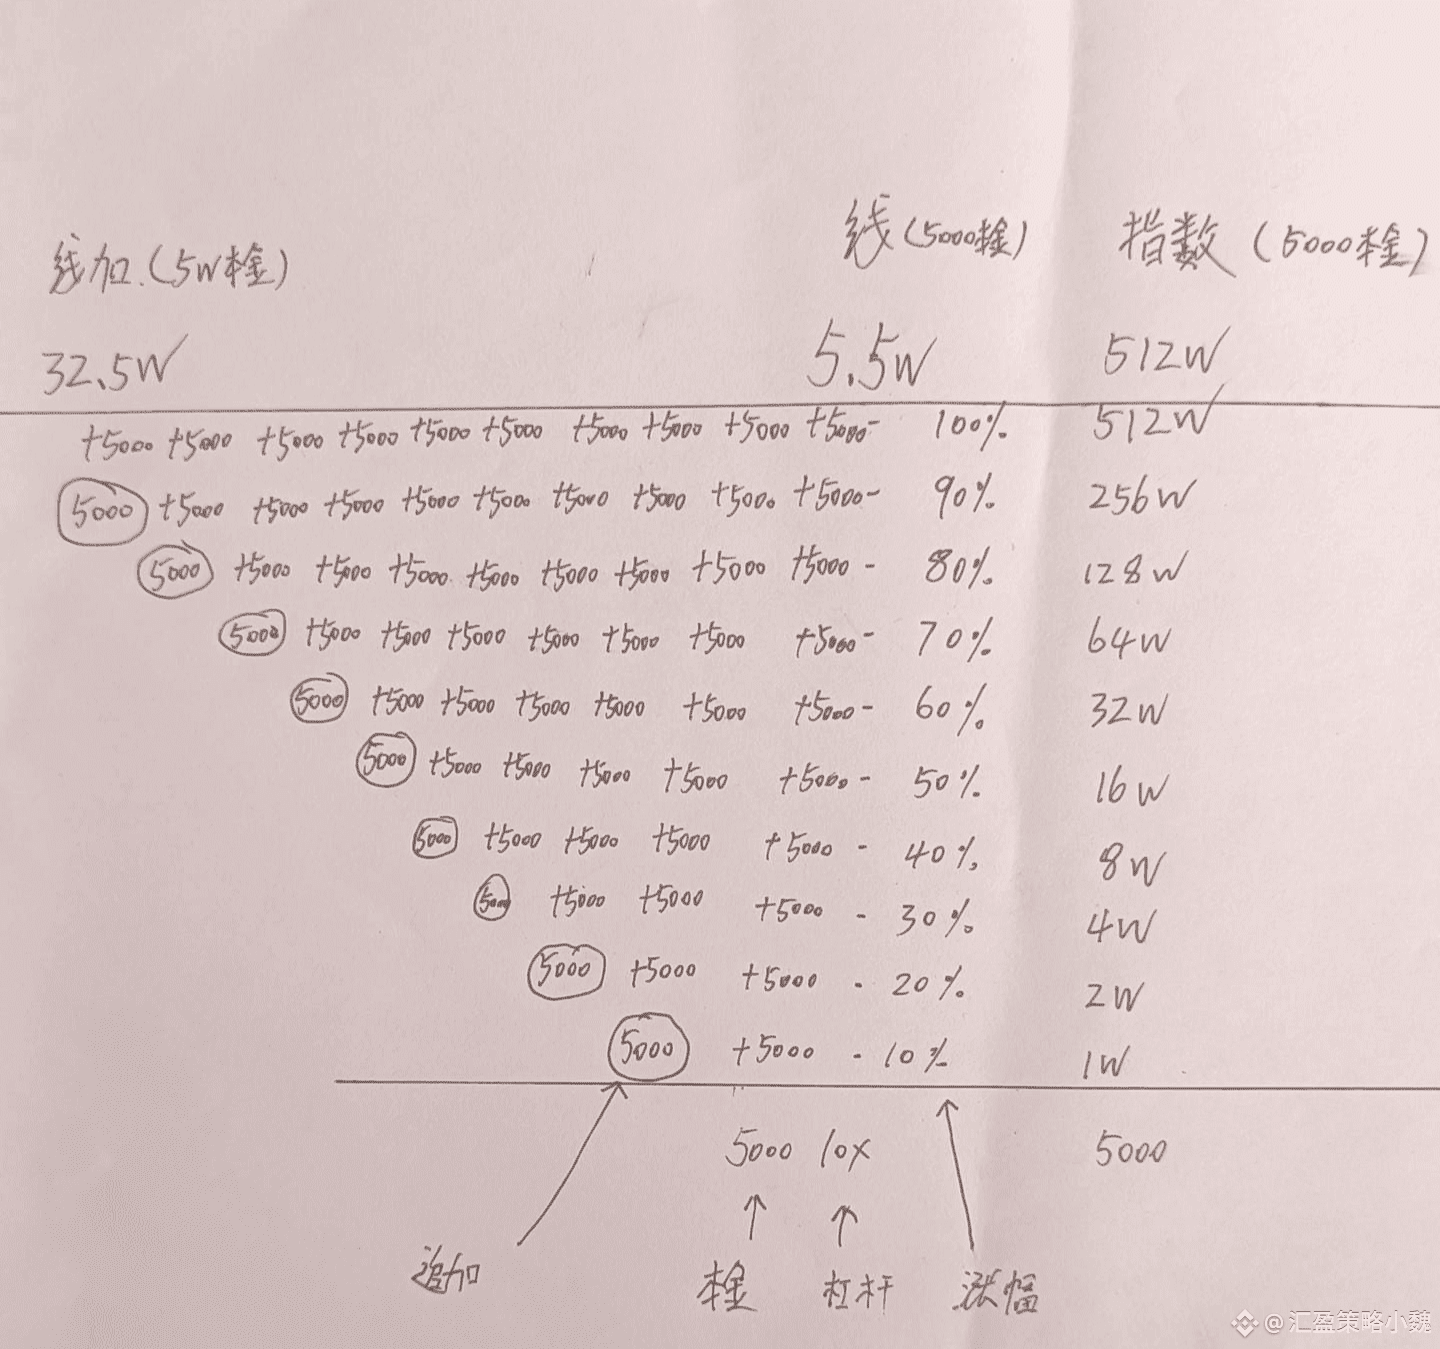 线加.(5W本金) 线(5000本金) 指数(5000本金)
32.5W 5.5W 512W
+5000 +5000 +5000 +5000 +5000 +5000 +5000 +5000 +5000 +5000- 100% 512W
5000 +5000 +5000 +5000 +5000 +5000 +5000 +5000 +5000 +5000- 90% 256W
5000 +5000 +5000 +5000 +5000 +5000 +5000 +5000 +5000- 80% 128W
5000 +5000 +5000 +5000 +5000 +5000 +5000 +5000- 70% 64W
5000 +5000 +5000 +5000 +5000 +5000 +5000- 60% 32W
5000 +5000 +5000 +5000 +5000 +5000- 50% 16W
5000 +5000 +5000 +5000 +5000- 40% 8W
5000 +5000 +5000 +5000- 30% 4W
5000 +5000 +5000- 20% 2W
5000 +5000- 10% 1W
5000 10x 5000
追加 本金 杠杆 涨幅
@汇盈策略小魏